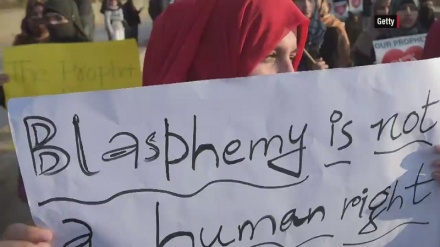 Getty
The Prophet
OUR PROPHET
Blasphemy is not
a human right